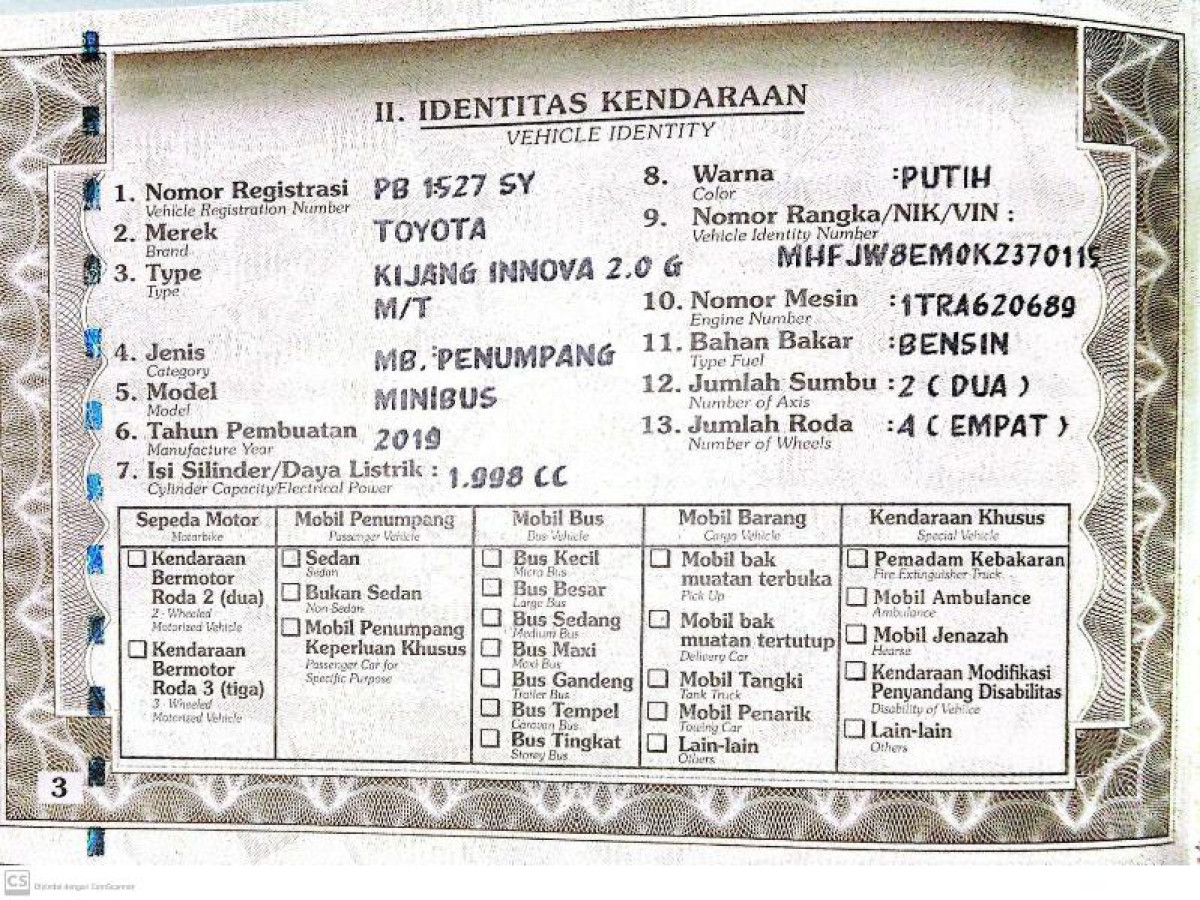 II. IDENTITAS KENDARAAN
VEHICLE IDENTITY
1. Nomor Registrasi PB 1527 SY
Vehicle Registration Number
2. Merek TOYOTA
Brand
3. Type KIJANG INNOVA 2.0 G
Type
M/T
4. Jenis MB. PENUMPANG
Category
5. Model MINIBUS
Model
6. Tahun Pembuatan 2019
Manufacture Year
7. Isi Silinder/Daya Listrik : 1.998 CC
Cylinder Capacity/Electrical Power
8. Warna :PUTIH
Color
9. Nomor Rangka/NIK/VIN :
Vehicle Identity Number
MHFJW8EM0K2370115
10. Nomor Mesin :1TRA620689
Engine Number
11. Bahan Bakar :BENSIN
Type Fuel
12. Jumlah Sumbu :2 ( DUA )
Number of Axis
13. Jumlah Roda :4 ( EMPAT )
Number of Wheels
Sepeda Motor
Motorbike
Kendaraan
Bermotor
Roda 2 (dua)
2 - Wheeled
Motorized Vehicle
Kendaraan
Bermotor
Roda 3 (tiga)
3 - Wheeled
Motorized Vehicle
Mobil Penumpang
Passenger Vehicle
Sedan
Sedan
Bukan Sedan
Non Sedan
Mobil Penumpang
Keperluan Khusus
Passenger Car for
Specific Purpose
Mobil Bus
Bus Vehicle
Bus Kecil
Micro Bus
Bus Besar
Large Bus
Bus Sedang
Medium Bus
Bus Maxi
Maxi Bus
Bus Gandeng
Trailer Bus
Bus Tempel
Caravan Bus
Bus Tingkat
Storey Bus
Mobil Barang
Cargo Vehicle
Mobil bak
muatan terbuka
Pick Up
Mobil bak
muatan tertutup
Delivery Car
Mobil Tangki
Tank Truck
Mobil Penarik
Towing Car
Lain-lain
Others
Kendaraan Khusus
Special Vehicle
Pemadam Kebakaran
Fire Extinguisher Truck
Mobil Ambulance
Ambulance
Mobil Jenazah
Hearse
Kendaraan Modifikasi
Penyandang Disabilitas
Disability of Vehilce
Lain-lain
Others
3
CS Dipindai dengan CamScanner